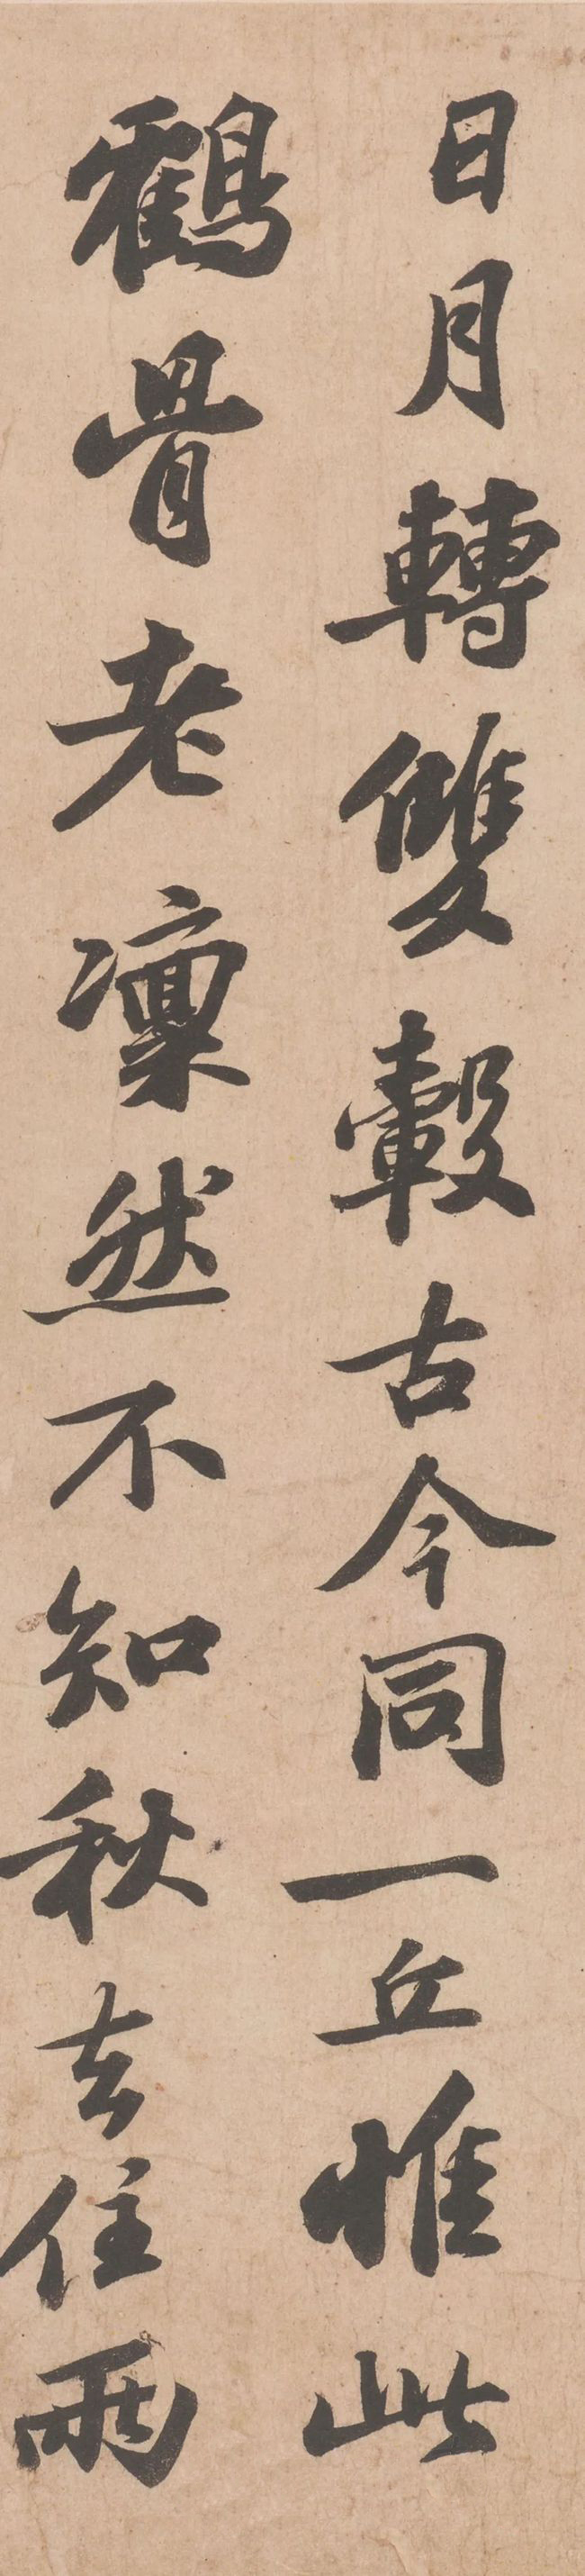 日月轉雙轂古今同一丘惟此
鶴骨老凜然不知秋去住兩